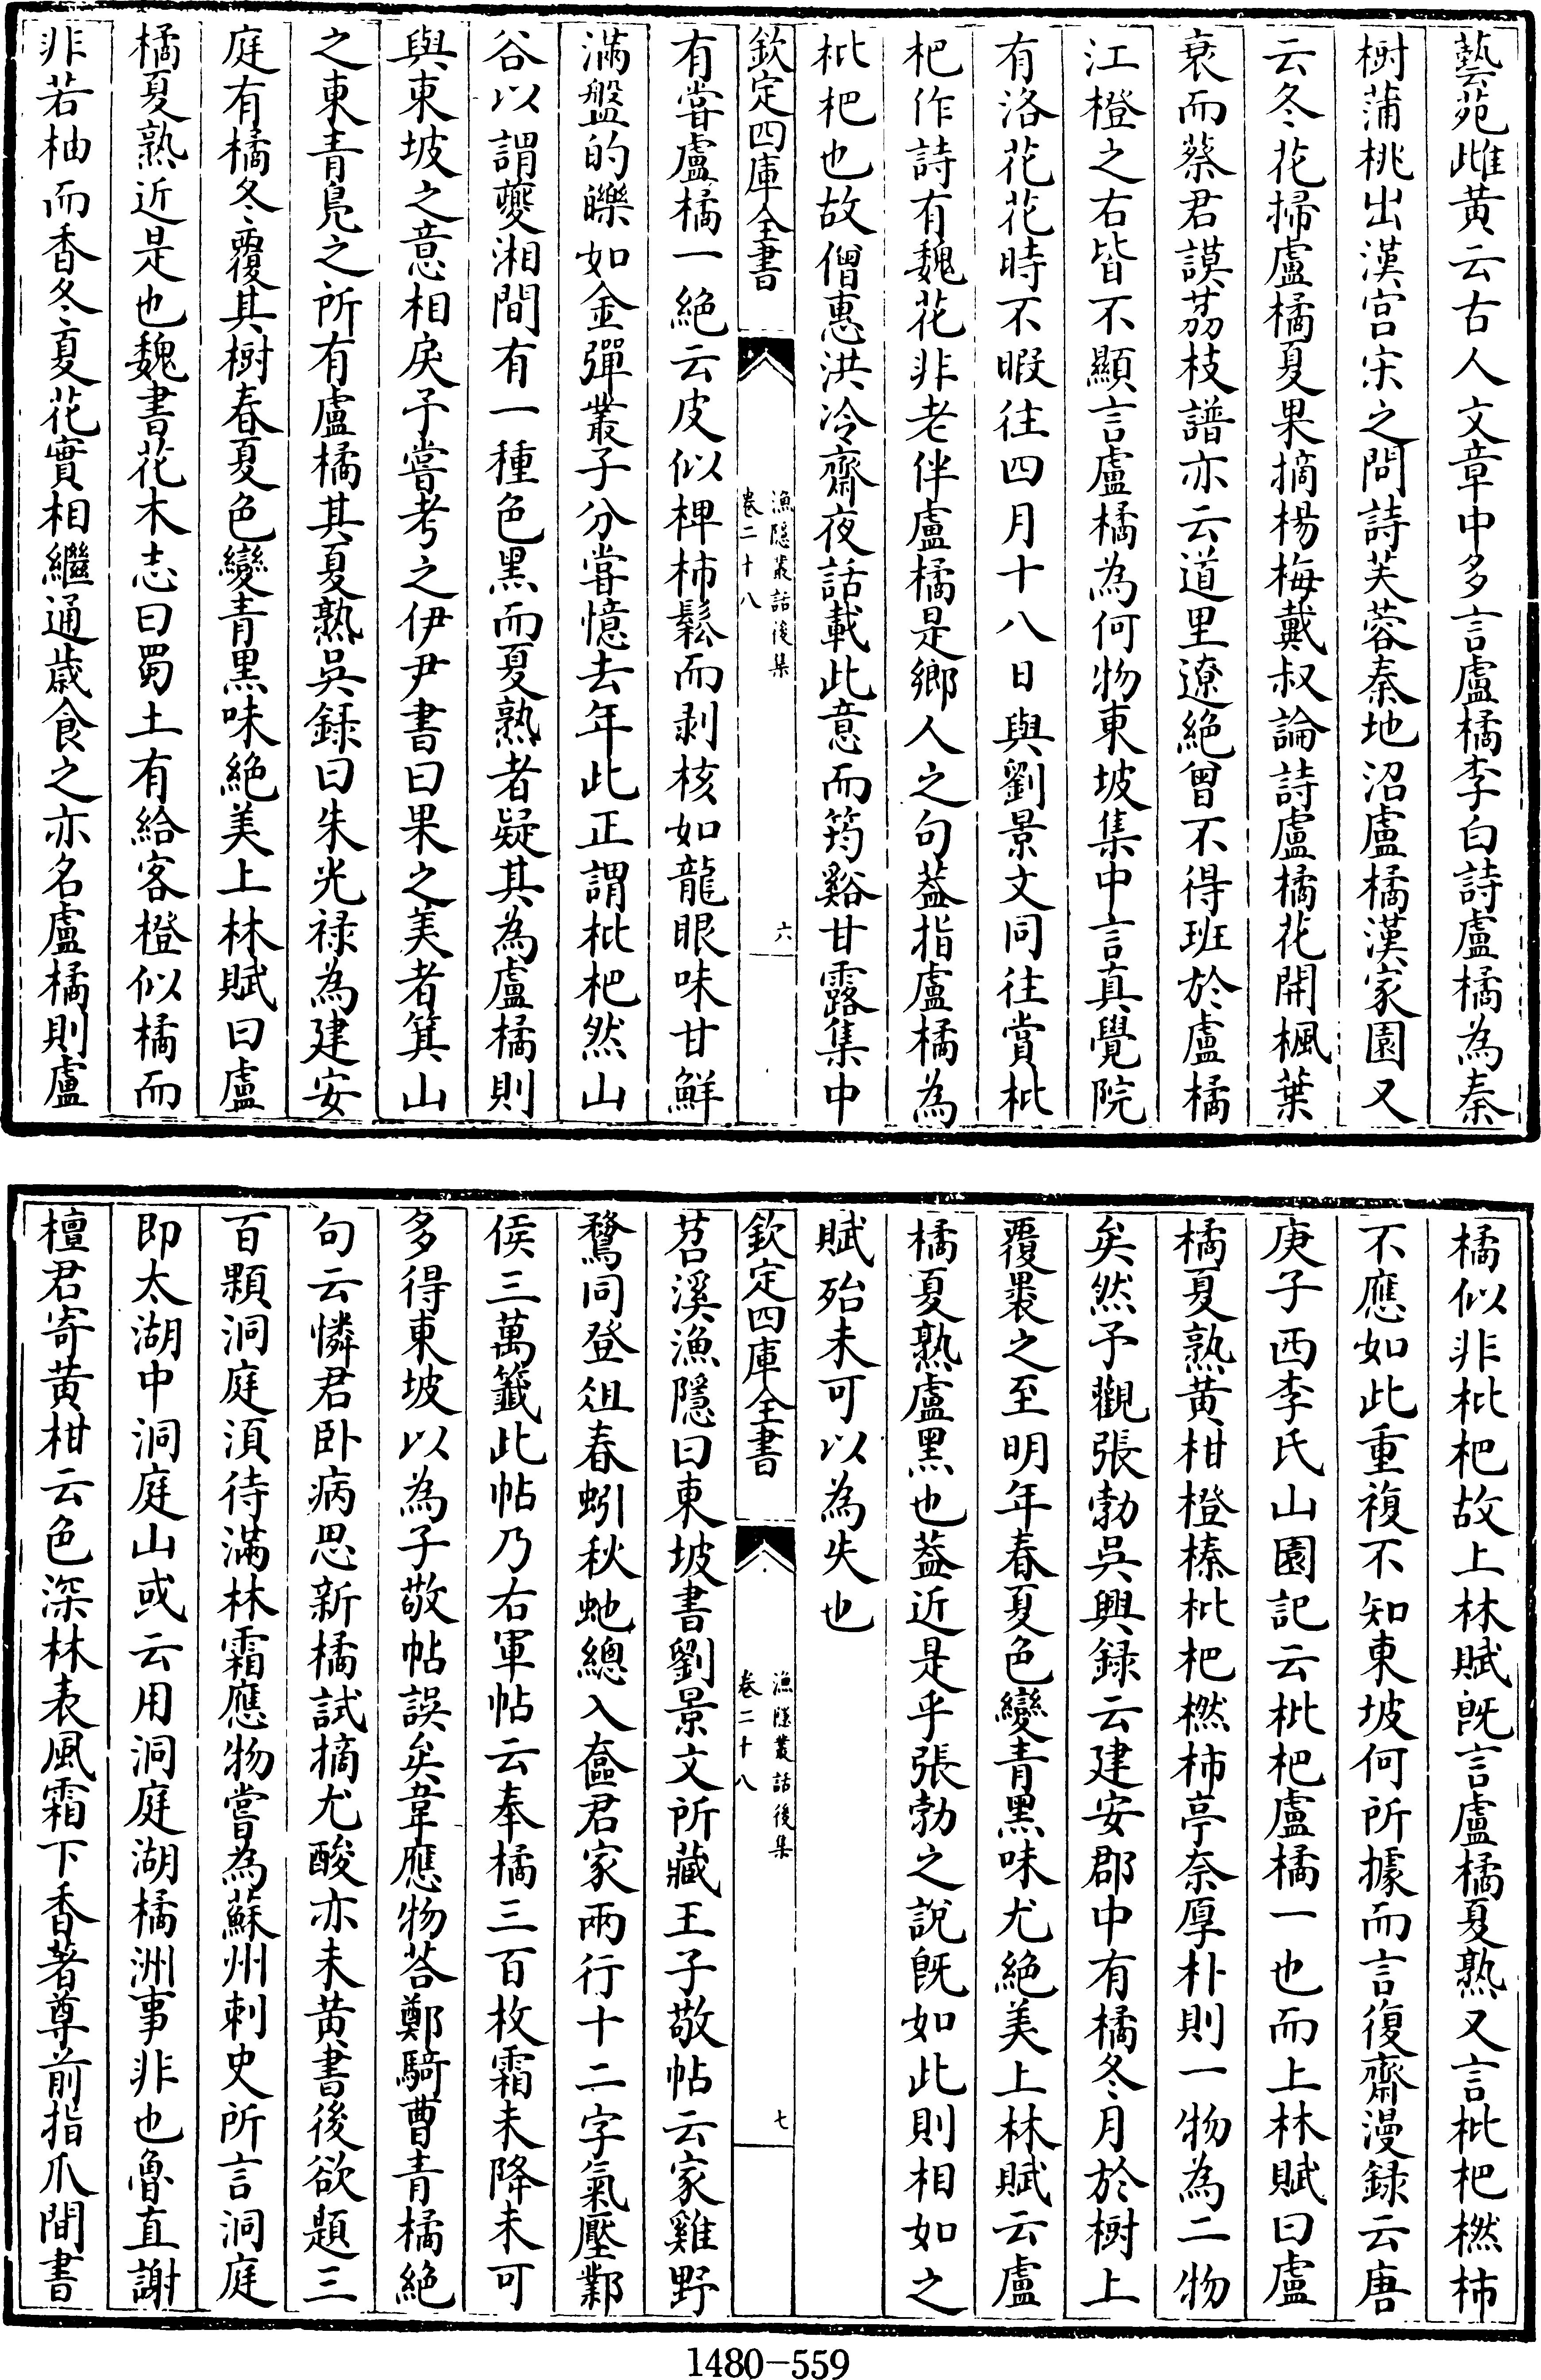 藝苑雌黄云古人文章中多言盧橘李白詩盧橘為秦
樹蒲桃出漢宫宋之問詩芙蓉秦地沼盧橘漢家園又
云冬花掃盧橘夏果摘楊梅戴叔論詩盧橘花開楓葉
衰而蔡君謨荔枝譜亦云道里遼絶曾不得班於盧橘
江橙之右皆不顯言盧橘為何物東坡集中言真覺院
有洛花花時不暇往四月十八日與劉景文同往賞枇
杷作詩有魏花非老伴盧橘是鄉人之句葢指盧橘為
枇杷也故僧惠洪冷齋夜話載此意而筠谿甘露集中
欽定四庫全書
漁隱叢話後集
卷二十八
六
有嘗盧橘一絶云皮似椑柿鬆而剥核如龍眼味甘鮮
滿盤的皪如金彈叢子分嘗憶去年此正謂枇杷然山
谷以謂夔湘間有一種色黑而夏熟者疑其為盧橘則
與東坡之意相戾予嘗考之伊尹書曰果之美者箕山
之東青鳬之所有盧橘其夏熟吳録曰朱光禄為建安
庭有橘冬覆其樹春夏色變青黑味絶美上林賦曰盧
橘夏熟近是也魏書花木志曰蜀土有給客橙似橘而
非若柚而香冬夏花實相繼通歲食之亦名盧橘則盧
橘似非枇杷故上林賦旣言盧橘夏熟又言枇杷橪柿
不應如此重複不知東坡何所據而言復齋漫録云唐
庚子西李氏山園記云枇杷盧橘一也而上林賦曰盧
橘夏熟黄柑橙楱枇杷橪柿亭奈厚朴則一物為二物
矣然予觀張勃吳興録云建安郡中有橘冬月於樹上
覆裹之至明年春夏色變青黑味尤絶美上林賦云盧
橘夏熟盧黑也葢近是乎張勃之說旣如此則相如之
賦殆未可以為失也
欽定四庫全書
漁隱叢話後集
卷二十八
七
苕溪漁隱曰東坡書劉景文所藏王子敬帖云家雞野
鶩同登俎春蚓秋虵總入奩君家兩行十二字氣壓鄴
侯三萬籤此帖乃右軍帖云奉橘三百枚霜未降未可
多得東坡以為子敬帖誤矣韋應物荅鄭騎曹青橘絶
句云憐君卧病思新橘試摘尤酸亦未黄書後欲題三
百顆洞庭湏待滿林霜應物嘗為蘇州刺史所言洞庭
即太湖中洞庭山或云用洞庭湖橘洲事非也魯直謝
檀君寄黄柑云色深林表風霜下香著尊前指爪間書
1480-559